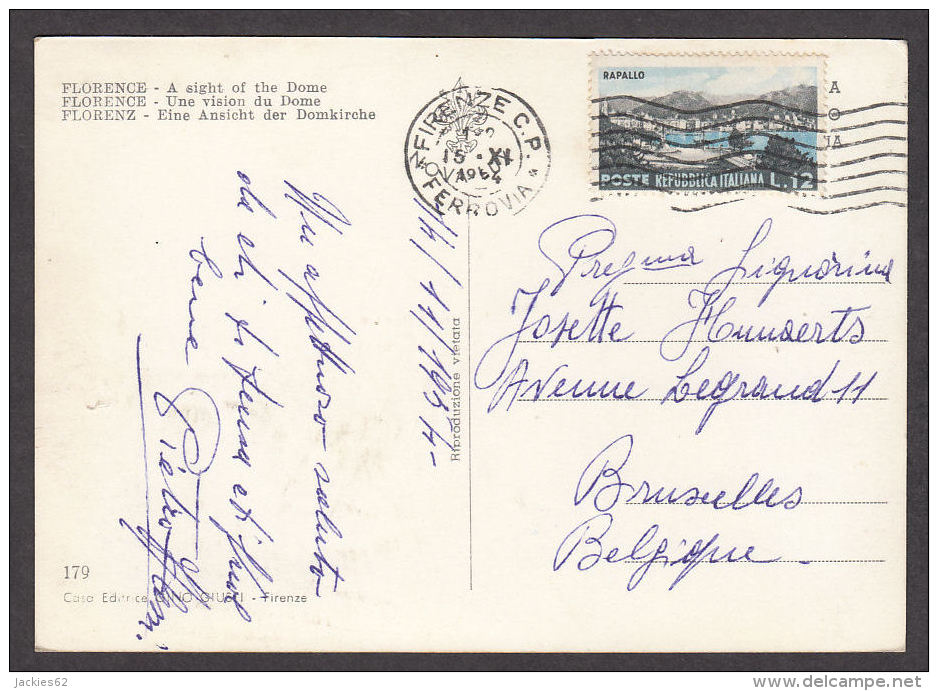 FLORENCE - A sight of the Dome
FLORENCE - Une vision du Dome
FLORENZ - Eine Ansicht der Domkirche
FIRENZE C.P.
15 · XI
1954
FERROVIA
RAPALLO
POSTE REPUBBLICA ITALIANA L.12
Un affettuoso saluto
da chi ti
bene
14/11/1954-
Riproduzione vietata
Signorina
Josette Hunaerts
Avenue Legrand 11
Bruxelles
Belgique
179
Casa Editrice GINO GIUSTI - Firenze
jackies62
www.delcampe.net